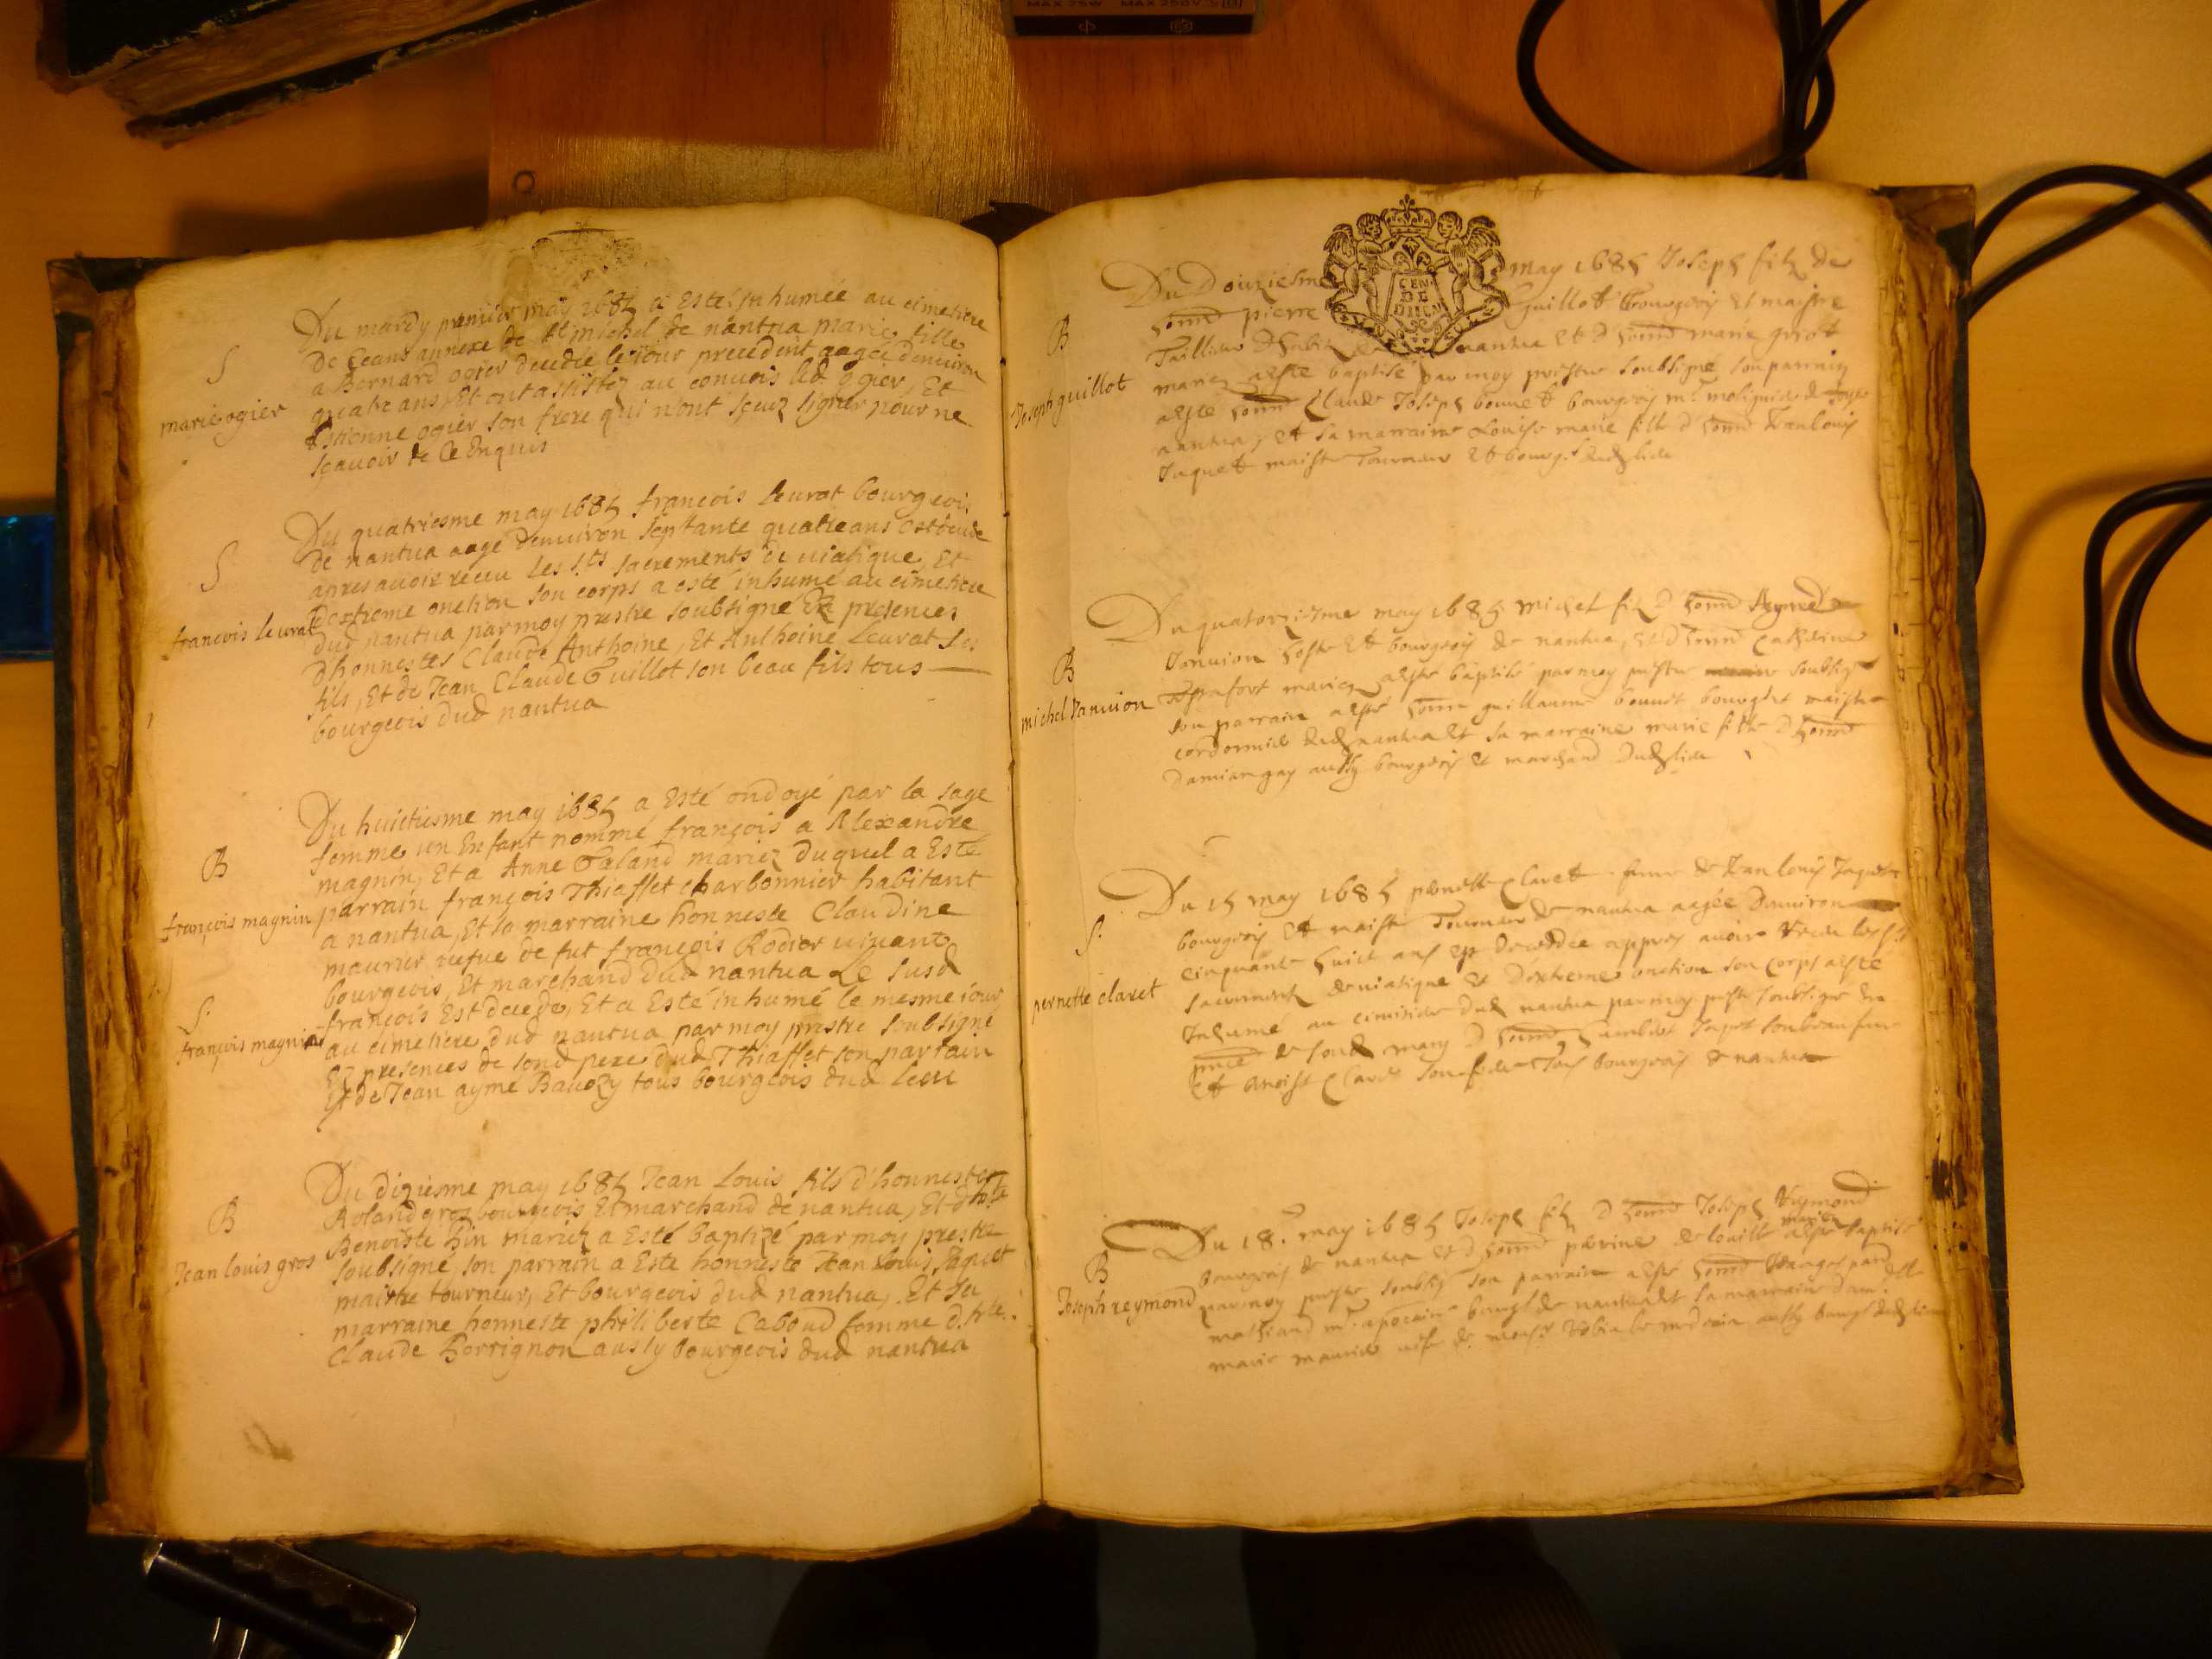 MAX 25W MAX 250V
S
marie ogier
Du mardy premier may 1685 a Esté inhumée au cimetiere
De Ceans annexe de St michel de nantua marie fille
a Bernard ogier decedée le iour precedent aagée denuiron
quatre ans, Et ont assistez au conuois led ogier, Et
Estienne ogier son frere qui n'ont sçeuz signer pour ne
sçauoir de Ce Enquis
S
francois leurat
Du quatriesme may 1685 françois leurat bourgeois
de nantua aagé denuiron septante quatre ans est decedé
apres auoir receu les Sts sacrements de uiatique, Et
dextreme onction son corps a esté inhumé au cimetiere
dud nantua par moy prestre soubsigné En presences
dhonnestes Claude Anthoine, Et Anthoine Leurat ses
fils, Et de Jean Claude Guillot son beau fils tous
bourgeois dud nantua
B
françois magnin
S.
françois magnin
Du huictiesme may 1685 a Esté ondoyé par la sage
femme un Enfant nommé françois a Alexandre
magnin, Et a Anne Galand mariez duquel a Esté
parrain françois Thiaffet charbonnier habitant
a nantua, Et sa marraine honneste Claudine
maurier uefue de fut françois Rodier uiuant
bourgeois, Et marchand dud nantua Le susd
françois Est decedé, Et a Esté inhumé le mesme iour
au cimetiere dud nantua par moy prestre soubsigné
En presences de sond pere dud Thiaffet son parrain
Et de Jean aymé Bauozy tous bourgeois dud lieu
B
Jean louis gros
Du diziesme may 1685 Jean Louis fils d'honnestes
Roland gros bourgeois Et marchand de nantua, Et dhte
Benoiste mariez a Esté baptizé par moy prestre
soubsigné, son parrain a Esté honneste Jean Louis Jaquet
maistre tourneur, Et bourgeois dud nantua, Et sa
marraine honneste philiberte Caboud femme d.hte.
Claude Perrignon aussy bourgeois dud nantua
B
Joseph guillot
CEN
DE
DIJON
Du Douziesme may 1685 Joseph filz de
honnē pierre Guillot bourgeois et maistre
Taillieur nantua et d honnē marie grost
mariez a esté baptisé par moy prestre soubsigné son parrain
a esté honnē Claude Joseph bonnet bourgeois
nantua, et sa marraine Louise marie fille d honnē Jean louis
Jaquet maistre Tourneur et bourg.s dud lieu
B
michel Januion
Du quatorziesme may 1685 michel filz d honnē Aymé
Januion hoste et bourgeois de nantua, et d honnē Catherine
mariez a esté baptisé par moy prestre soubsigné
son parrain a esté honnē guillaume bonnet bourg. et maistre
cordonnier dud nantua et sa marraine marie fille d honnē
Damian gay aussy bourgeois et marchand dud lieu
S.
pernette claret
Du 15 may 1685 pernette Claret femme de Jean louis Jaquet
bourgeois et maistre Tourneur de nantua aagée denuiron
cinquante huict ans est decedée appres auoir receu les Sts
sacrements de uiatique et d'extreme onction son corps a esté
Inhumé au cimitiere dud nantua par moy prestre soubsigné En
pnce de sond mary d honnē humbert Japot son beau frere
et benoist Claret son frere Tous bourgeois de nantua
B
Joseph reymond
Du 18.e may 1685 Joseph filz d honnē Joseph Reymond
bourgeois de nantua et d honnē perrine de louille mariez a esté baptisé
par moy prestre soubsig. son parrain a esté honnē
marchand m.e apoticaire bourg.s de nantua et sa marraine dam.lle
marie maurier uefue de mons.r medecin aussy bourg.s dud lieu